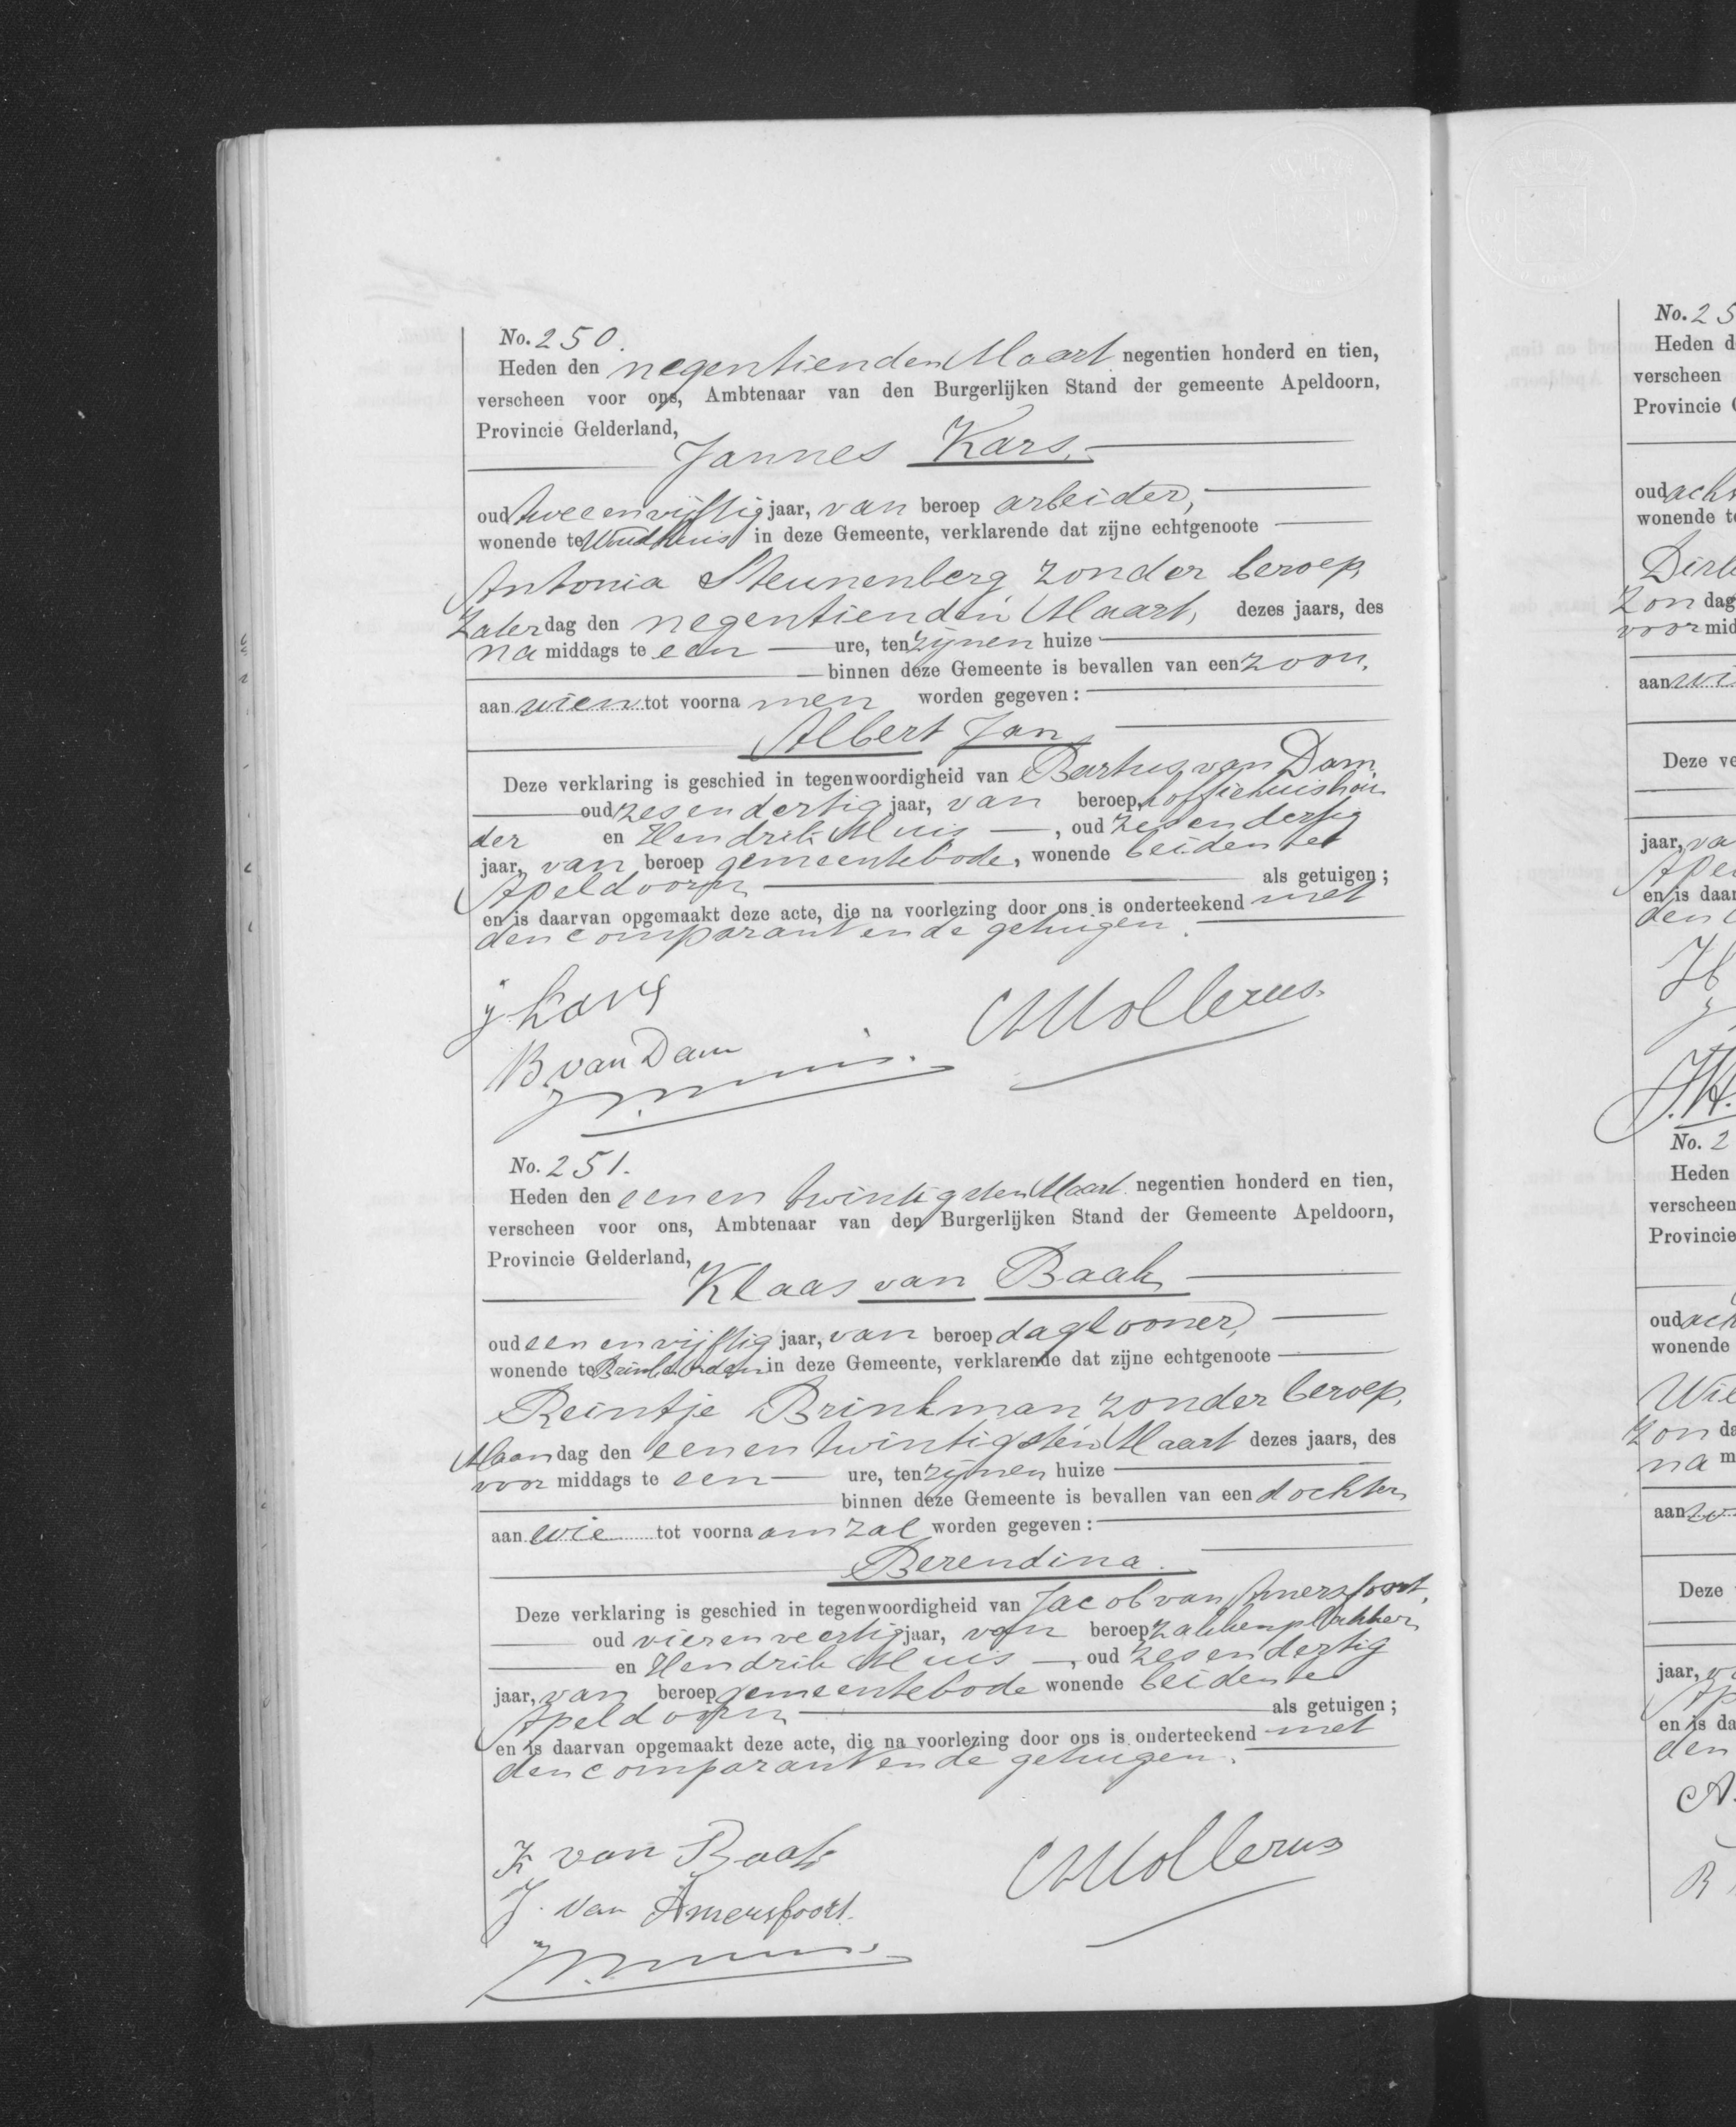 No. 250.
Heden den negentienden Maart negentien honderd en tien,
verscheen voor ons, Ambtenaar van den Burgerlijken Stand der gemeente Apeldoorn,
Provincie Gelderland,
Jannes Kars,
oud twee en vijftig jaar, van beroep arbeider,
wonende te Woudhuis in deze Gemeente, verklarende dat zijne echtgenoote
Antonia Steunenberg zonder beroep,
Zaterdag den negentienden Maart, dezes jaars, des
na middags te een ure, ten zijnen huize
binnen deze Gemeente is bevallen van een zoon,
aan wien tot voorna men worden gegeven :
Albert Jan
Deze verklaring is geschied in tegenwoordigheid van Bartus van Dam,
oud zes en dertig jaar, van beroep, koffiehuishou
der en Hendrik Muis, oud zes en dertig
jaar, van beroep gemeentebode, wonende beiden te
Apeldoorn als getuigen ;
en is daarvan opgemaakt deze acte, die na voorlezing door ons is onderteekend met
den comparant en de getuigen.
J Kars
B van Dam
CMollerus
H. Muis.
No. 251.
Heden den een en twintigsten Maart negentien honderd en tien,
verscheen voor ons, Ambtenaar van den Burgerlijken Stand der Gemeente Apeldoorn,
Provincie Gelderland,
Klaas van Baak
oud een en vijftig jaar, van beroep daglooner,
wonende te in deze Gemeente, verklarende dat zijne echtgenoote
Reintje Brinkman zonder beroep,
Maandag den een en twintigsten Maart dezes jaars, des
voor middags te een ure, ten zijnen huize
binnen deze Gemeente is bevallen van een dochter,
aan wie tot voorna am zal worden gegeven :
Berendina.
Deze verklaring is geschied in tegenwoordigheid van Jacob van Amersfoort,
oud vier en veertig jaar, van beroep zakkenplakker
en Hendrik Muis, oud zes en dertig
jaar, van beroep gemeentebode wonende beiden te
Apeldoorn als getuigen ;
en is daarvan opgemaakt deze acte, die na voorlezing door ons is onderteekend met
den comparant en de getuigen.
K van Baak
J. van Amersfoort.
CMollerus
H. Muis
No. 25
Heden d
verscheen
Provincie
oud ach
wonende t
Dir
Zon dag
voor mid
aan
Deze ve
jaar, va
Ape
en is daar
den
J.H.
No. 2
Heden
verscheen
Provincie
oud ach
wonende
Zon da
na m
aan
Deze
jaar, v
Ap
en is da
den